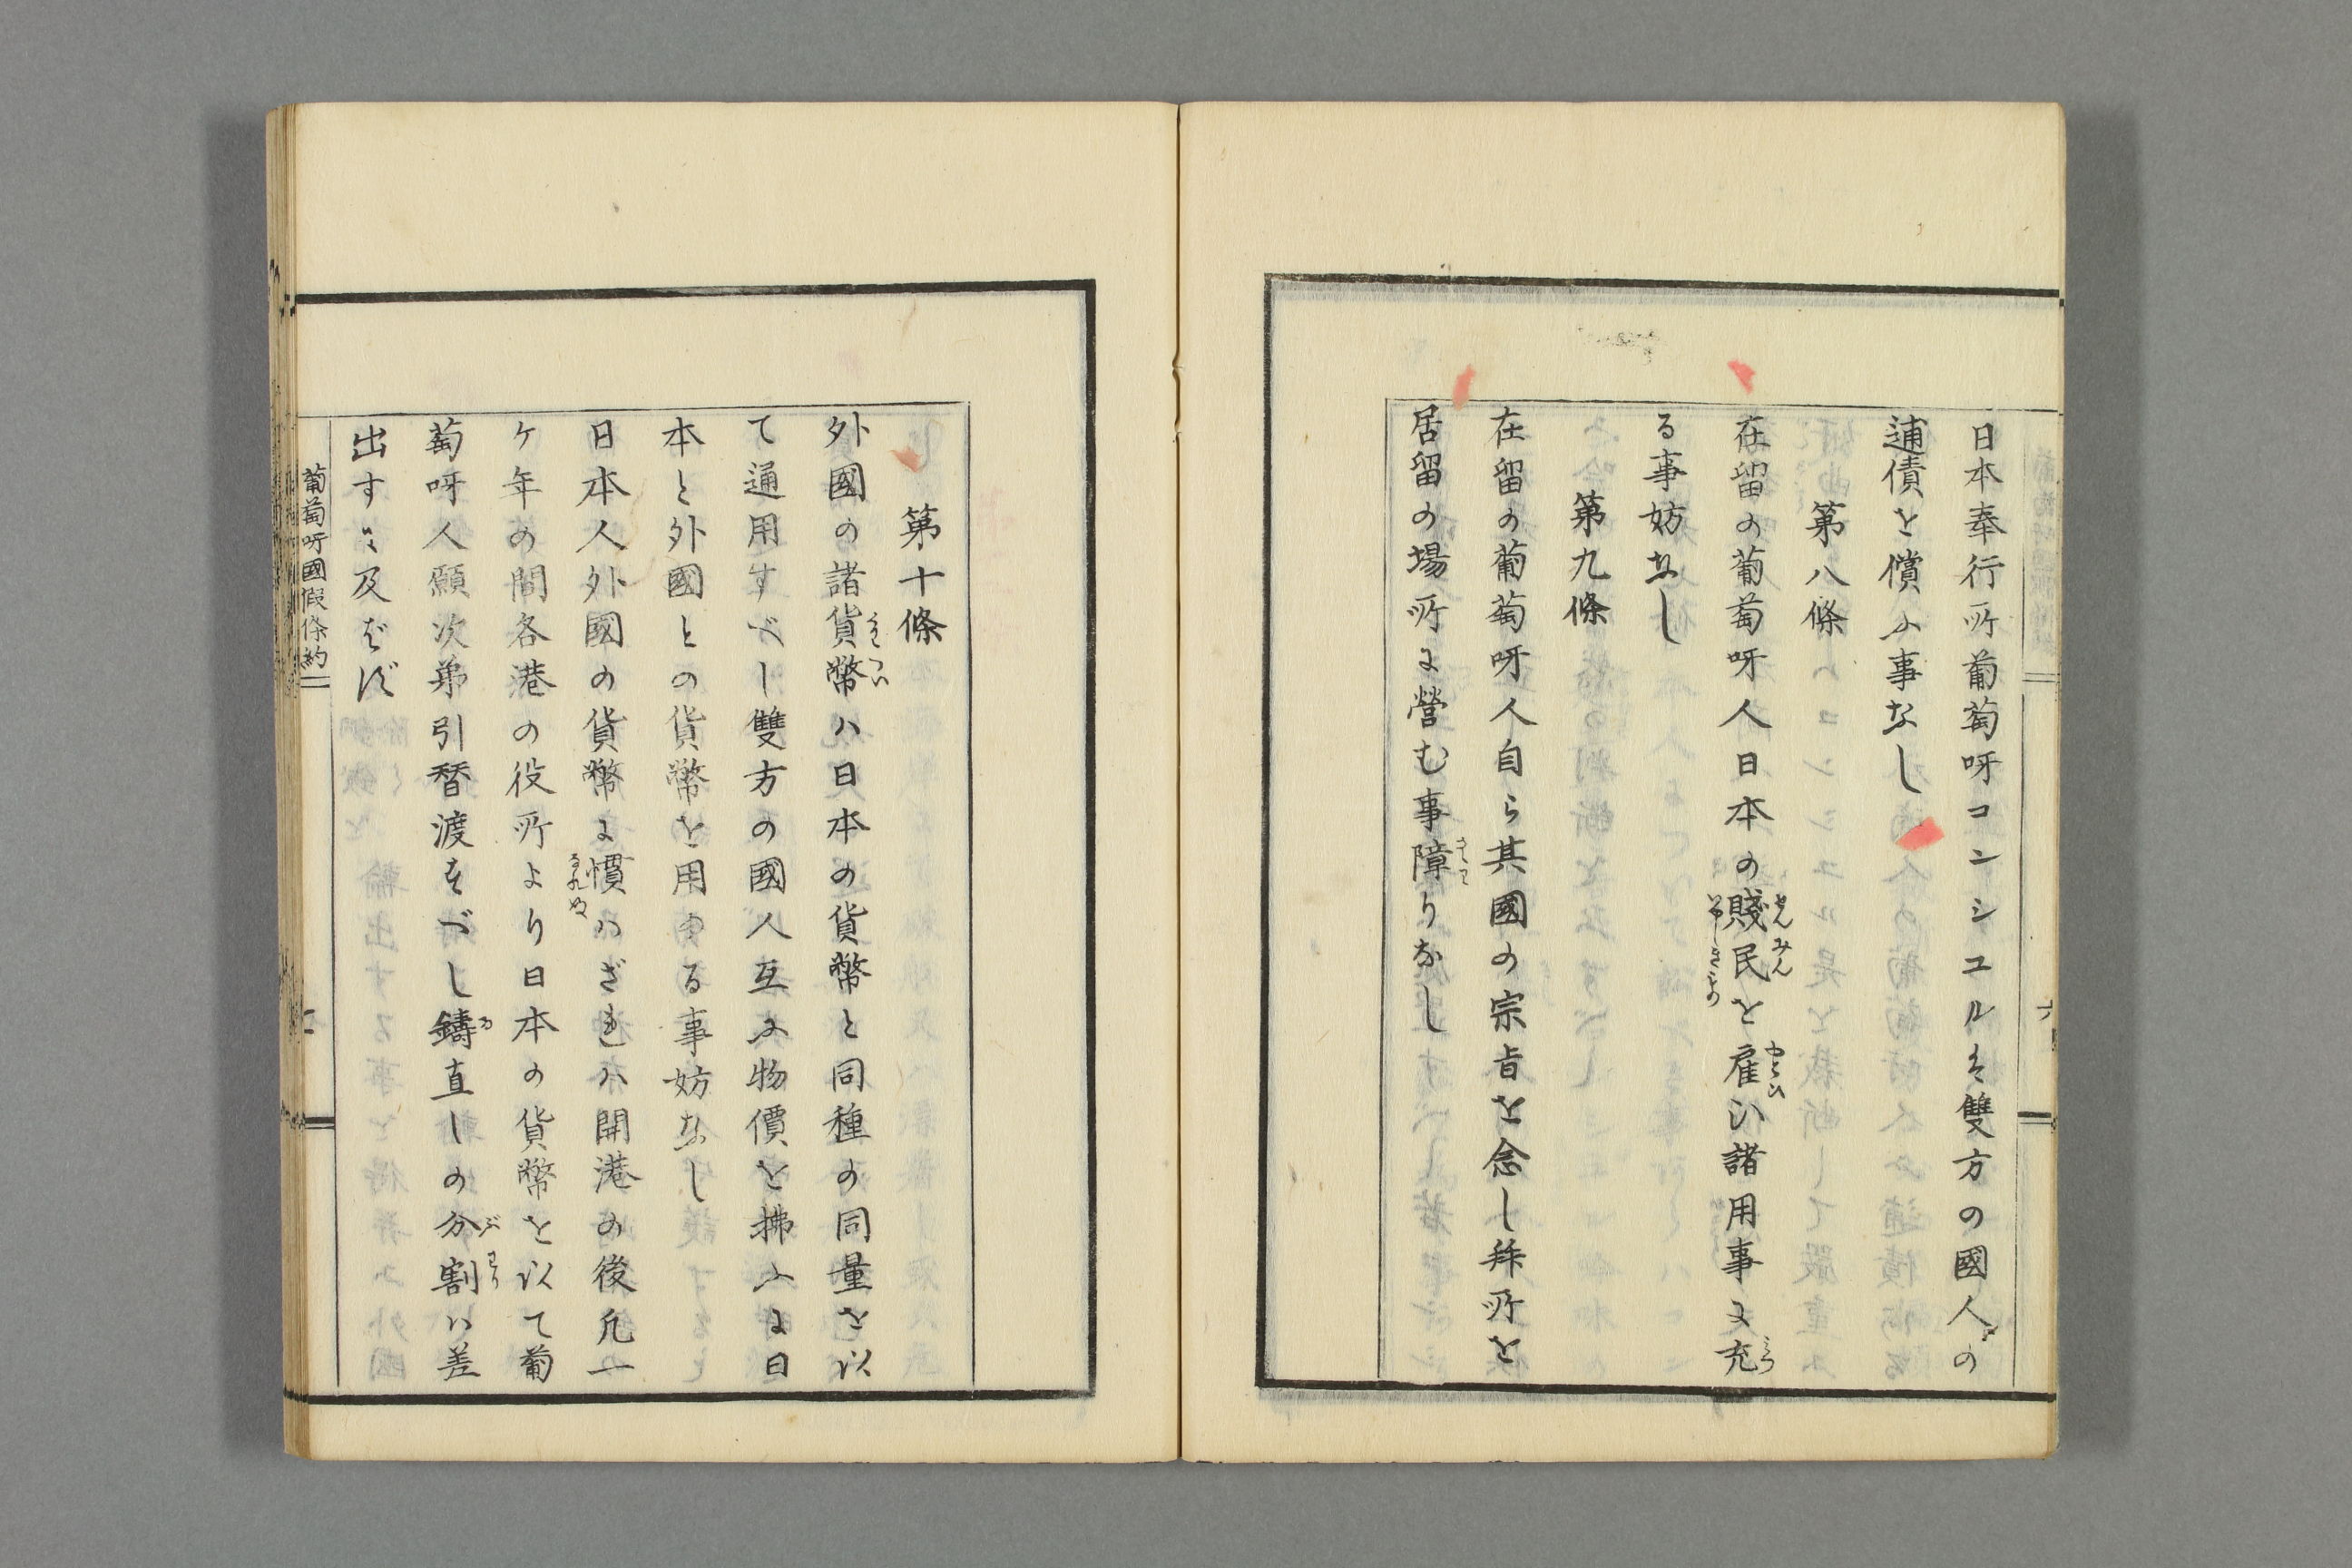 日本奉行所葡萄呀コンシユルハ雙方の國人の
逋債を償ふ事なし
第八條
在留の葡萄呀人日本の賤民を雇ひ諸用事に充
る事妨なし
第九條
在留の葡萄呀人自ら其國の宗旨を念し拜所を
居留の場所に營む事障りなし
第十條
外國の諸貨幣ハ日本の貨幣と同種の同量を以
て通用すべし雙方の國人互に物價を拂ふに日
本と外國との貨幣を用ゆる事妨なし
日本人外國の貨幣に慣ハざれハ開港の後凡一
ケ年の間各港の役所より日本の貨幣を以て葡
萄呀人願次弟引替渡すべし鑄直しの分割ハ差
出すに及ばず
葡萄呀國假條約
六